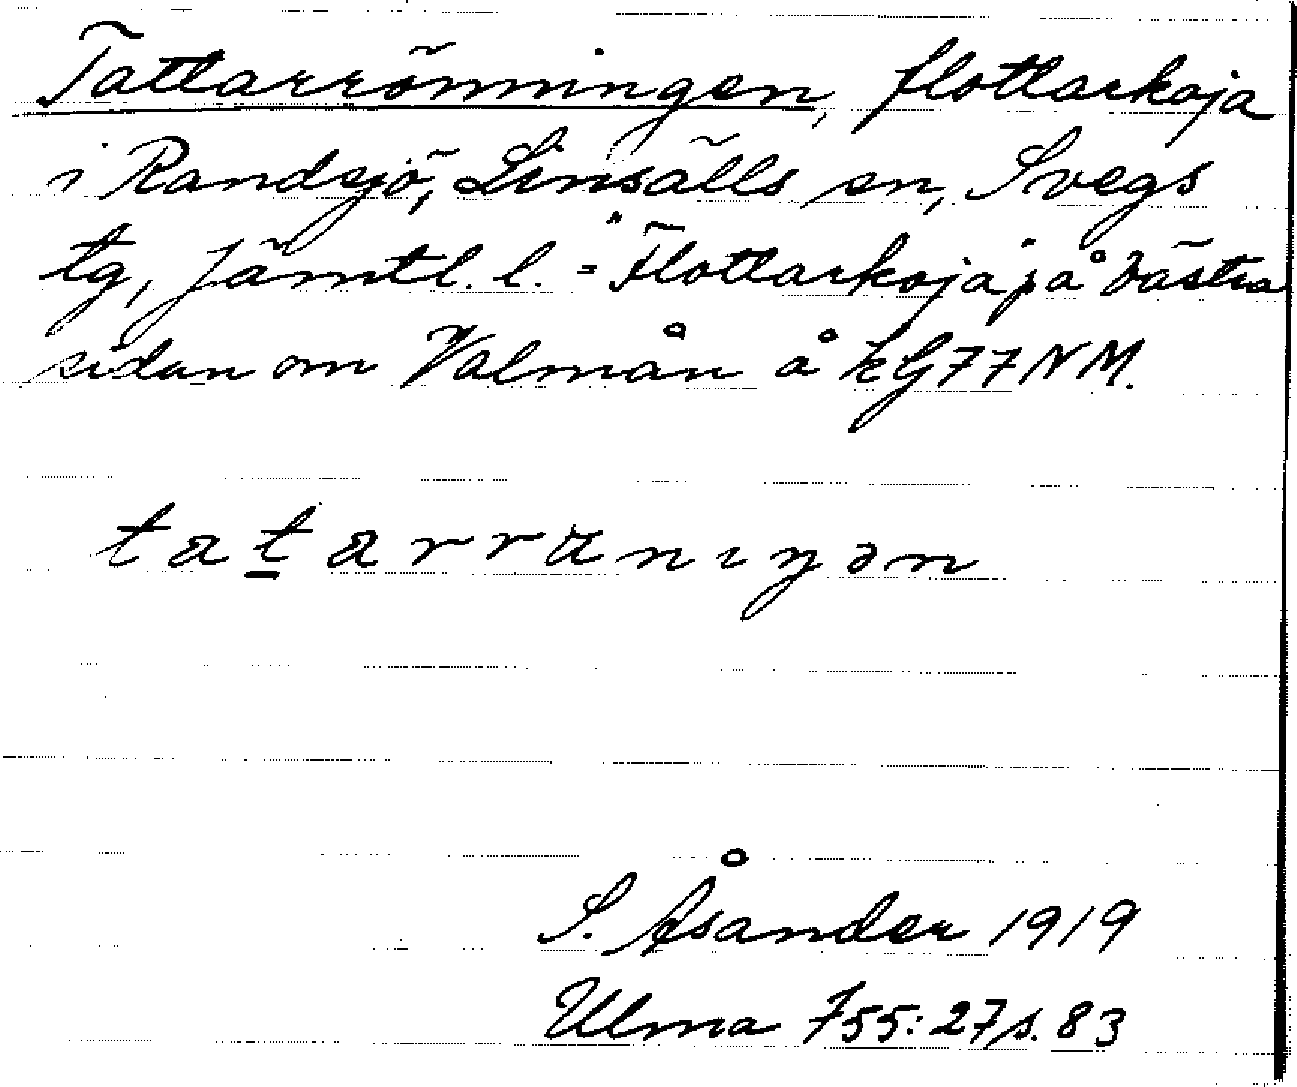 Tattarrönningen, flottarkoja
i Randsjö, Linsälls sn, Svegs
tg, Jämtl. l. - "Flottarkoja på västra
sidan om Valmån å kG77NM.
tatarräniŋən
S. Åsander 1919
Ulma 755:27 s. 83